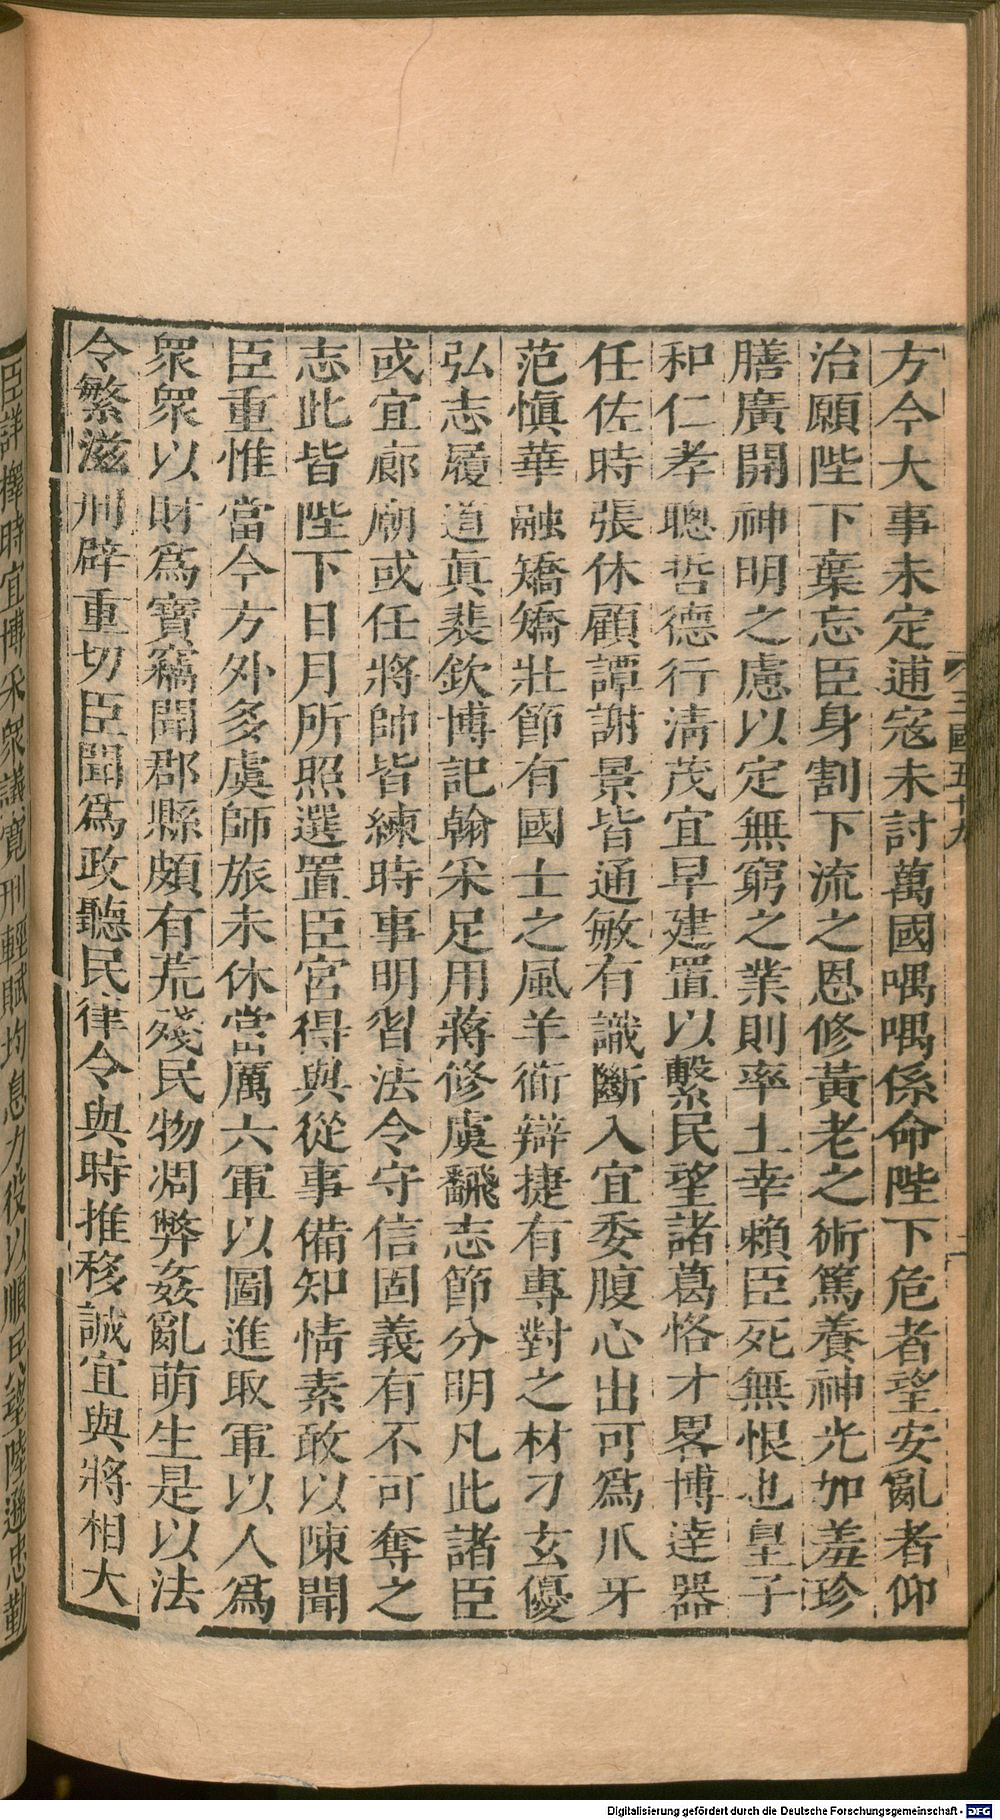 方今大事未定逋寇未討萬國喁喁係命陛下危者望安亂者仰
治願陛下棄忘臣身割下流之恩修黃老之術篤養神光加羞珍
膳廣開神明之慮以定無窮之業則率土幸賴臣死無恨也皇子
和仁孝聰哲德行淸茂宜早建置以繫民望諸葛恪才畧博達器
任佐時張休顧譚謝景皆通敏有識斷入宜委腹心出可爲爪牙
范愼華融矯矯壯節有國士之風羊衜辯捷有專對之材刁玄優
弘志履道眞裴欽博記翰采足用蔣修虞翻志節分明凡此諸臣
或宜廊廟或任將帥皆練時事明習法令守信固義有不可奪之
志此皆陛下日月所照選置臣宮得與從事備知情素敢以陳聞
臣重惟當今方外多虞師旅未休當厲六軍以圖進取軍以人爲
眾眾以財爲寶竊聞郡縣頗有荒殘民物凋弊姦亂萌生是以法
令繁滋刑辟重切臣聞爲政聽民律令與時推移誠宜與將相大
臣詳擇時宜博采眾議寬刑輕賦均息力役以順民望陸遜忠勤
三國五十九
二
Digitalisierung gefördert durch die Deutsche Forschungsgemeinschaft - DFG